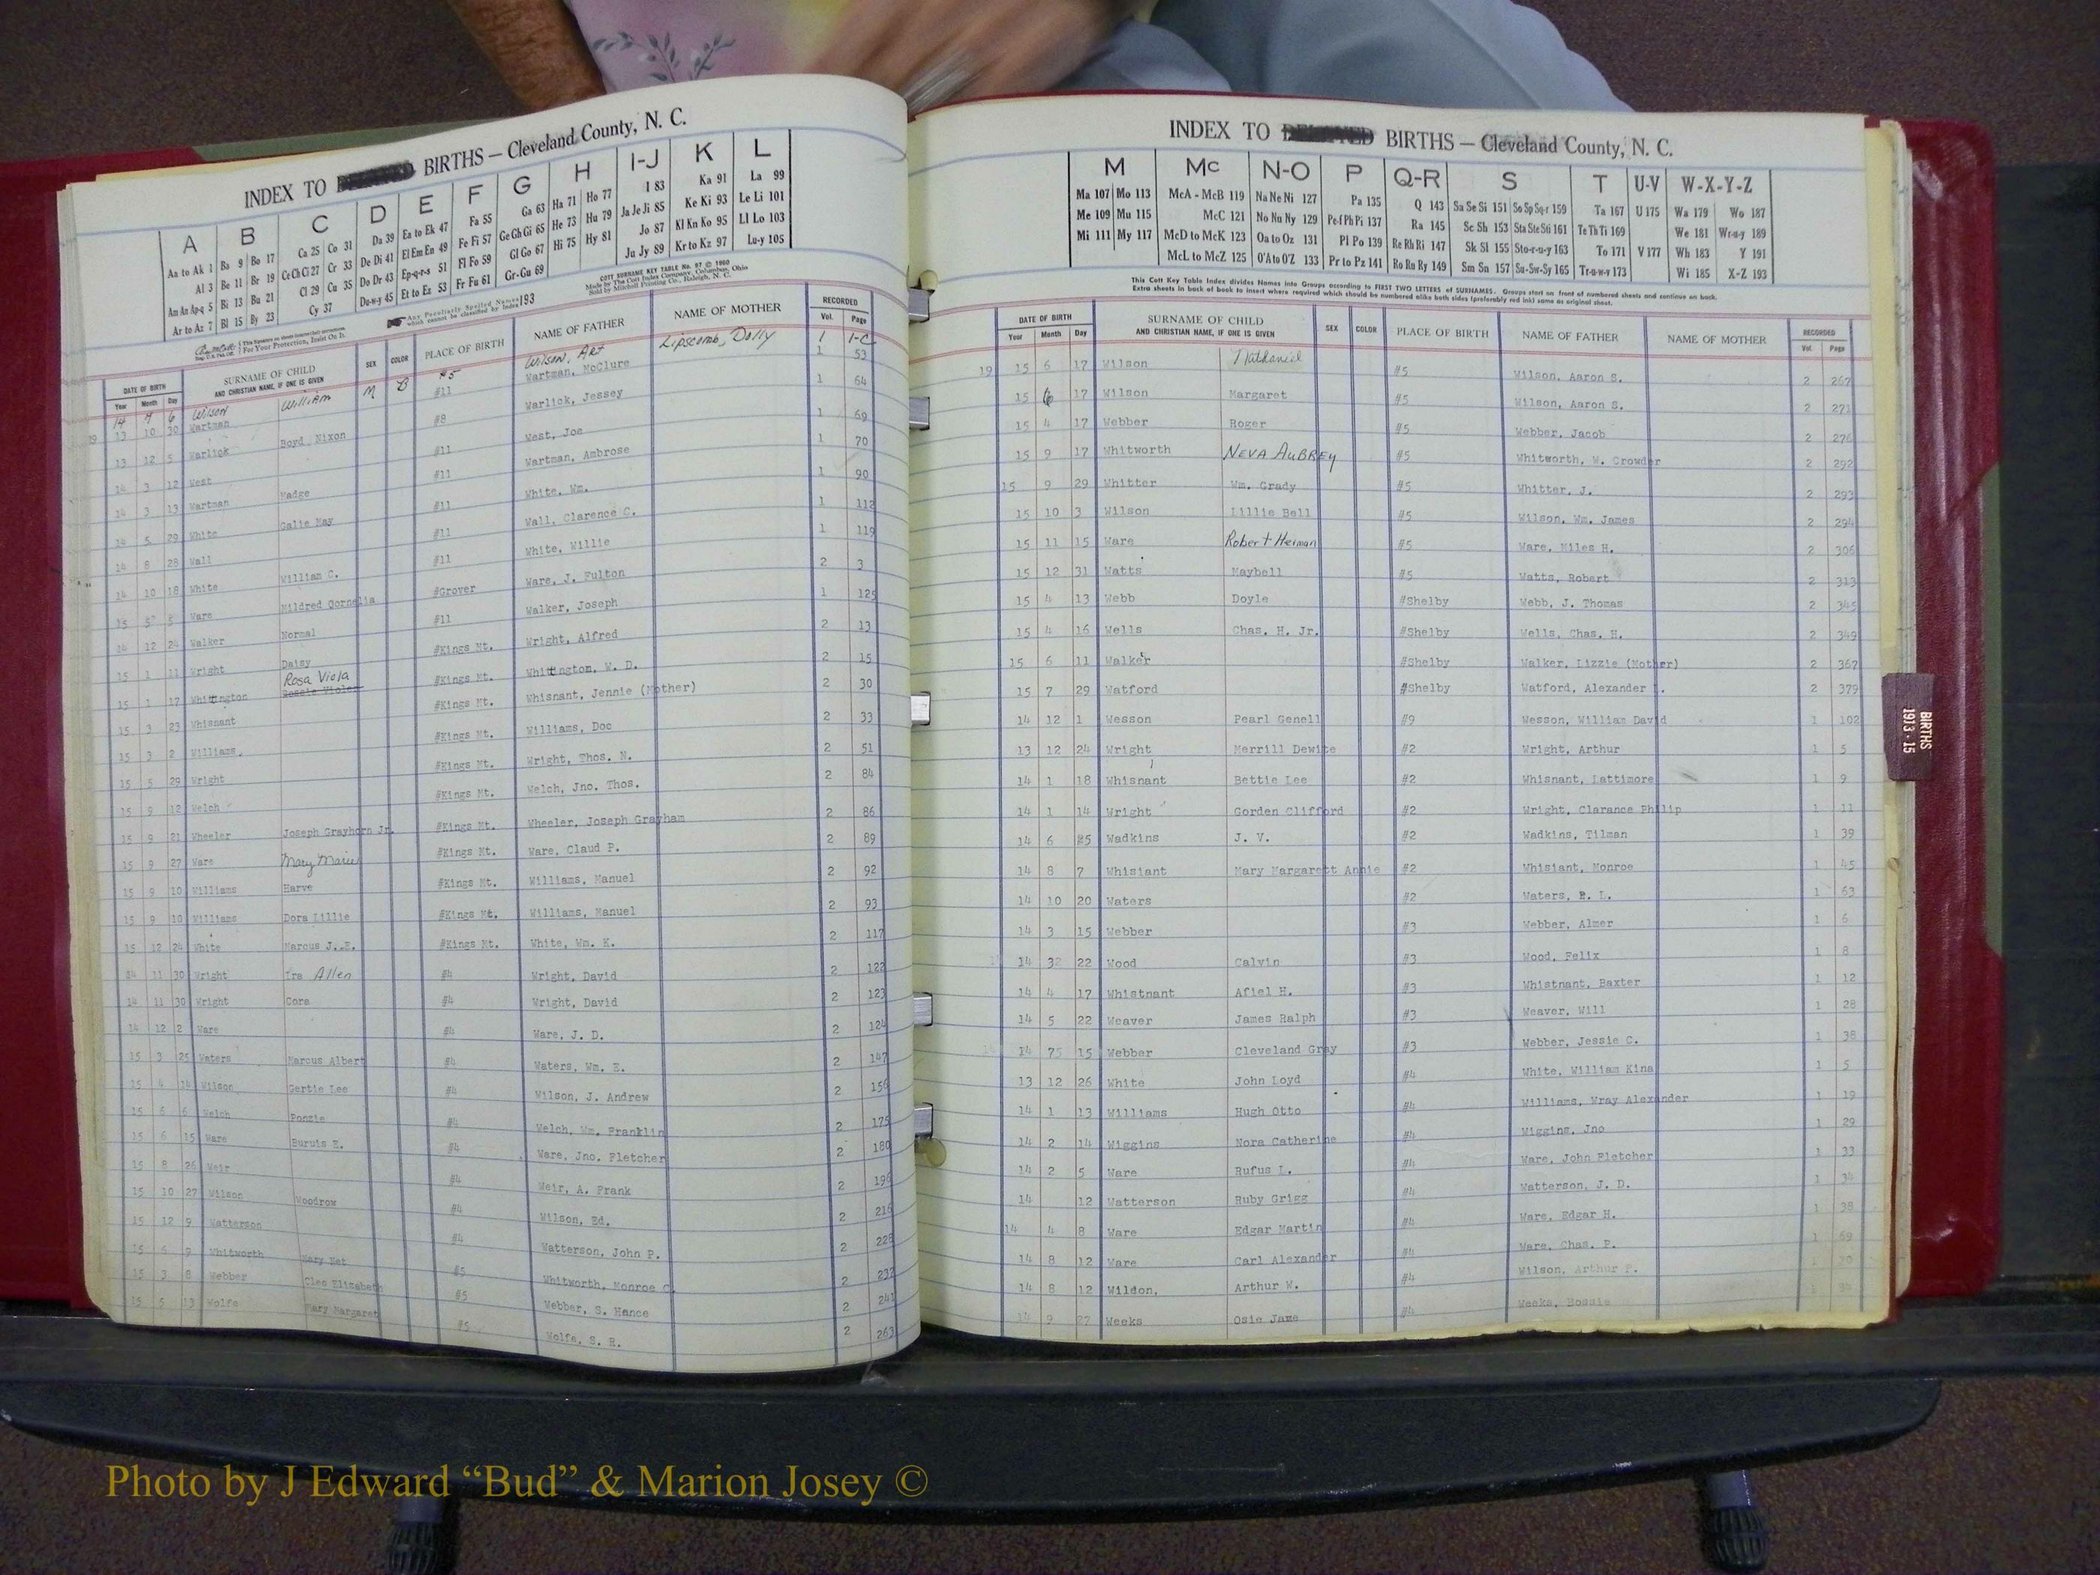 INDEX TO BIRTHS — Cleveland County, N. C.
A B C D E F G H I-J K L
Aa to Ak 1 Ba 9 Bo 17 Ca 25 Co 31 Da 39 Ea to Ek 47 Fa 55 Ga 63 Ha 71 Ho 77 I 83 Ka 91 La 99
Al 3 Be 11 Br 19 Ce Ch Ci 27 Cr 33 De Di 41 El Em En 49 Fe Fi 57 Ge Gh Gi 65 He 73 Hu 79 Ja Je Ji 85 Ke Ki 93 Le Li 101
Am An Ap-q 5 Bi 13 Bu 21 Cl 29 Cu 35 Do Dr 43 Ep-q-r-s 51 Fl Fo 59 Gl Go 67 Hi 75 Hy 81 Jo 87 Kl Kn Ko 95 Ll Lo 103
Ar to Az 7 Bl 15 By 23 Cy 37 Du-w-y 45 Et to Ez 53 Fr Fu 61 Gr-Gu 69 Ju Jy 89 Kr to Kz 97 Lu-y 105
Any Peculiarly Spelled Names which cannot be classified by Index 193
COTT SURNAME KEY TABLE No. 97 © 1960
Made by The Cott Index Company, Columbus, Ohio
Sold by Mitchell Printing Co., Raleigh, N. C.
DATE OF BIRTH SURNAME OF CHILD AND CHRISTIAN NAME, IF ONE IS GIVEN SEX COLOR PLACE OF BIRTH NAME OF FATHER NAME OF MOTHER RECORDED
Year Month Day Vol. Page
14 9 6 Wilson William M B #5 Wilson, Art Lipscomb, Dolly 1 1-C
19 13 10 30 Wartman #11 Wartman, McClure 1 53
13 12 5 Warlick Boyd Nixon #8 Warlick, Jessey 1 64
14 3 12 West #11 West, Joe 1 69
14 3 13 Wartman Madge #11 Wartman, Ambrose 1 70
14 5 29 White Galie May #11 White, Wm. 1 90
14 8 28 Wall #11 Wall, Clarence C. 1 112
14 10 18 White William C. #11 White, Willie 1 119
15 5 5 Ware Mildred Cornelia #Grover Ware, J. Fulton 2 3
14 12 24 Walker Normal #11 Walker, Joseph 1 125
15 1 11 Wright Daisy #Kings Mt. Wright, Alfred 2 13
15 1 17 Whittington Rosa Viola #Kings Mt. Whittington, W. D. 2 15
15 3 23 Whisnant #Kings Mt. Whisnant, Jennie (Mother) 2 30
15 3 2 Williams. #Kings Mt. Williams, Doc 2 33
15 5 29 Wright #Kings Mt. Wright, Thos. N. 2 51
15 9 12 Welch #Kings Mt. Welch, Jno. Thos. 2 84
15 9 21 Wheeler Joseph Grayhorn Jr. #Kings Mt. Wheeler, Joseph Grayham 2 86
15 9 27 Ware Mary Marie #Kings Mt. Ware, Claud P. 2 89
15 9 10 Williams Harve #Kings Mt. Williams, Manuel 2 92
15 9 10 Williams Dora Lillie #Kings Mt. Williams, Manuel 2 93
15 12 24 White Marcus J. B. #Kings Mt. White, Wm. K. 2 117
14 11 30 Wright Ira Allen #4 Wright, David 2 122
14 11 30 Wright Cora #4 Wright, David 2 123
14 12 2 Ware #4 Ware, J. D. 2 124
15 3 25 Waters Marcus Albert #4 Waters, Wm. E. 2 147
15 4 14 Wilson Gertie Lee #4 Wilson, J. Andrew 2 156
15 6 6 Welch Ponzie #4 Welch, Wm. Franklin 2 175
15 6 15 Ware Buruis E. #4 Ware, Jno. Fletcher 2 180
15 8 26 Weir #4 Weir, A. Frank 2 196
15 10 27 Wilson Woodrow #4 Wilson, Ed. 2 216
15 12 9 Watterson #4 Watterson, John P. 2 228
15 6 9 Whitworth Mary Net #5 Whitworth, Monroe C. 2 232
15 3 8 Webber Cleo Elizabeth #5 Webber, S. Hance 2 241
15 5 13 Wolfe Mary Margaret #5 Wolfe, S. R. 2 263
INDEX TO BIRTHS — Cleveland County, N. C.
M Mc N-O P Q-R S T U-V W-X-Y-Z
Ma 107 Mo 113 McA - McB 119 Na Ne Ni 127 Pa 135 Q 143 Sa Se Si 151 So Sp Sq-r 159 Ta 167 U 175 Wa 179 Wo 187
Me 109 Mu 115 McC 121 No Nu Ny 129 Pe-f Ph Pi 137 Ra 145 Sc Sh 153 Sta Ste Sti 161 Te Th Ti 169 We 181 Wr-u-y 189
Mi 111 My 117 McD to McK 123 Oa to Oz 131 Pl Po 139 Re Rh Ri 147 Sk Sl 155 Sto-r-u-y 163 To 171 V 177 Wh 183 Y 191
McL to McZ 125 O'A to O'Z 133 Pr to Pz 141 Ro Ru Ry 149 Sm Sn 157 Su-Sw-Sy 165 Tr-u-w-y 173 Wi 185 X-Z 193
This Cott Key Table Index divides Names into Groups according to FIRST TWO LETTERS of SURNAMES. Groups start on front of numbered sheets and continue on back.
Extra sheets in back of book to insert where required which should be numbered alike both sides (preferably red ink) same as original sheet.
DATE OF BIRTH SURNAME OF CHILD AND CHRISTIAN NAME, IF ONE IS GIVEN SEX COLOR PLACE OF BIRTH NAME OF FATHER NAME OF MOTHER RECORDED
Year Month Day Vol. Page
19 15 6 17 Wilson Nathaniel #5 Wilson, Aaron S. 2 267
15 6 17 Wilson Margaret #5 Wilson, Aaron S. 2 271
15 4 17 Webber Roger #5 Webber, Jacob 2 276
15 9 17 Whitworth NEVA AUBREY #5 Whitworth, W. Crowder 2 292
15 9 29 Whitter Wm. Grady #5 Whitter, J. 2 293
15 10 3 Wilson Lillie Bell #5 Wilson, Wm. James 2 294
15 11 15 Ware Robert Heiman #5 Ware, Miles H. 2 306
15 12 31 Watts Maybell #5 Watts, Robert 2 313
15 4 13 Webb Doyle #Shelby Webb, J. Thomas 2 345
15 4 16 Wells Chas. H. Jr. #Shelby Wells, Chas. H. 2 349
15 6 11 Walker #Shelby Walker, Lizzie (Mother) 2 367
15 7 29 Watford #Shelby Watford, Alexander L. 2 379
14 12 1 Wesson Pearl Genell #9 Wesson, William David 1 102
13 12 24 Wright Merrill Dewite #2 Wright, Arthur 1 5
14 1 18 Whisnant Bettie Lee #2 Whisnant, Lattimore 1 9
14 1 14 Wright Gorden Clifford #2 Wright, Clarance Philip 1 11
14 6 25 Wadkins J. V. #2 Wadkins, Tilman 1 39
14 8 7 Whisiant Mary Margarett Annie #2 Whisiant, Monroe 1 45
14 10 20 Waters #2 Waters, R. L. 1 63
14 3 15 Webber #3 Webber, Almer 1 6
14 32 22 Wood Calvin #3 Wood, Felix 1 8
14 4 17 Whistnant Afiel H. #3 Whistnant, Baxter 1 12
14 5 22 Weaver James Ralph #3 Weaver, Will 1 28
14 75 15 Webber Cleveland Gray #3 Webber, Jessie C. 1 38
13 12 26 White John Loyd #4 White, William King 1 5
14 1 13 Williams Hugh Otto #4 Williams, Wray Alexander 1 19
14 2 14 Wiggins Nora Catherine #4 Wiggins, Jno 1 29
14 2 5 Ware Rufus L. #4 Ware, John Fletcher 1 33
14 12 Watterson Ruby Grigg Watterson, J. D. 1 34
14 4 8 Ware Edgar Martin #4 Ware, Edgar H. 1 38
14 8 12 Ware Carl Alexander #4 Ware, Chas. P. 1 69
14 8 12 Wildon, Arthur W. #4 Wilson, Arthur P. 1
14 9 27 Weeks Osie Jame #4 Weeks, Bossie 1
BIRTHS
1913 - 15
Photo by J Edward “Bud” & Marion Josey ©